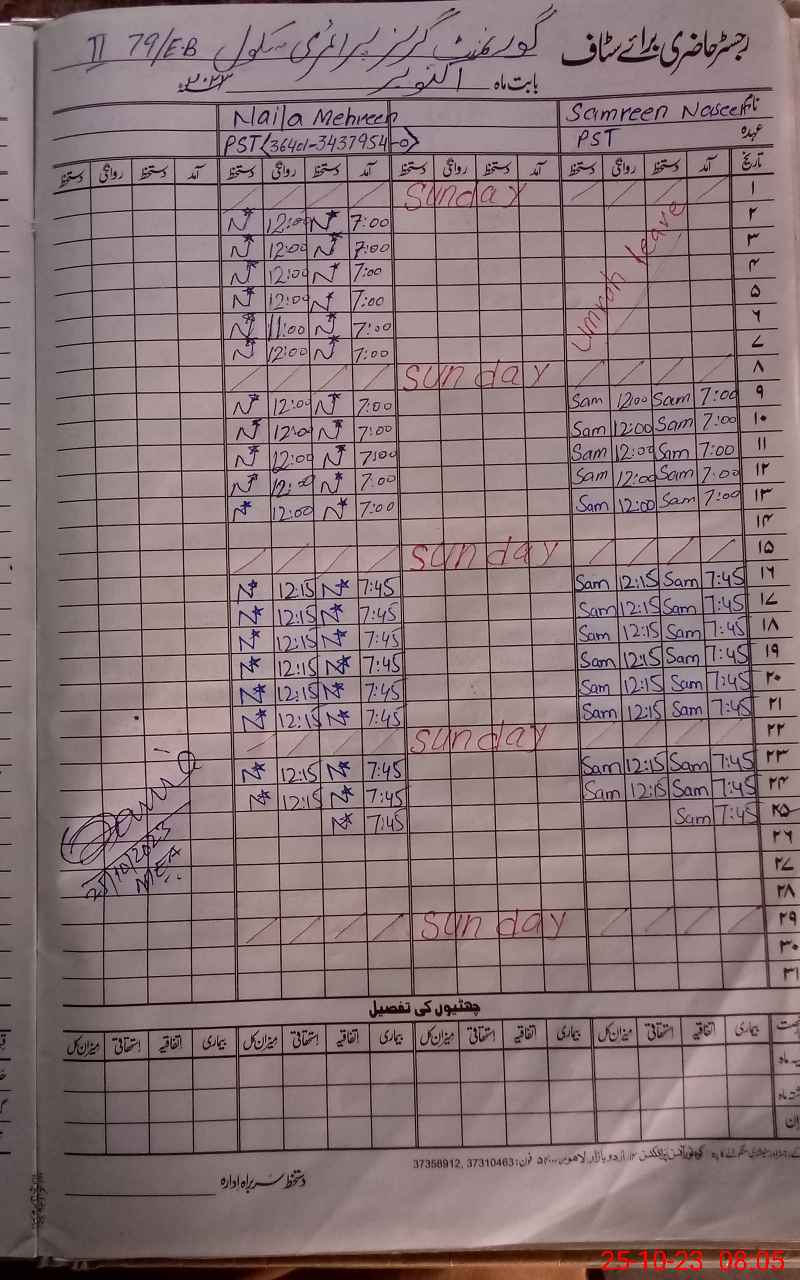 رجسٹر حاضری برائے سٹاف گورنمنٹ گرلز پرائمری سکول 79/E.B II
بابت ماہ اکتوبر ۲۰۲۳
نام Samreen Naseem Naila Mehreen
عہدہ PST PST (36401-3437954-0)
تاریخ آمد دستخط روانگی دستخط آمد دستخط روانگی دستخط آمد دستخط روانگی دستخط آمد دستخط روانگی دستخط
۱ Sunday
۲ 7:00 N* 12:00 N*
۳ 7:00 N* 12:00 N*
۴ 7:00 N* 12:00 N*
۵ 7:00 N* 12:00 N*
۶ 7:00 N* 11:00 N*
۷ 7:00 N* 12:00 N*
Umrah leave
۸ Sunday
۹ 7:00 Sam 12:00 Sam 7:00 N* 12:00 N*
۱۰ 7:00 Sam 12:00 Sam 7:00 N* 12:00 N*
۱۱ 7:00 Sam 12:00 Sam 7:00 N* 12:00 N*
۱۲ 7:00 Sam 12:00 Sam 7:00 N* 12:00 N*
۱۳ 7:00 Sam 12:00 Sam 7:00 N* 12:00 N*
۱۴
۱۵ Sunday
۱۶ 7:45 Sam 12:15 Sam 7:45 N* 12:15 N*
۱۷ 7:45 Sam 12:15 Sam 7:45 N* 12:15 N*
۱۸ 7:45 Sam 12:15 Sam 7:45 N* 12:15 N*
۱۹ 7:45 Sam 12:15 Sam 7:45 N* 12:15 N*
۲۰ 7:45 Sam 12:15 Sam 7:45 N* 12:15 N*
۲۱ 7:45 Sam 12:15 Sam 7:45 N* 12:15 N*
۲۲ Sunday
۲۳ 7:45 Sam 12:15 Sam 7:45 N* 12:15 N*
۲۴ 7:45 Sam 12:15 Sam 7:45 N* 12:15 N*
۲۵ 7:45 Sam 7:45 N*
25/10/2023
MEA
۲۶
۲۷
۲۸
۲۹ Sunday
۳۰
۳۱
چھٹیوں کی تفصیل
بیماری اتفاقیہ استحقاقی میزان کل بیماری اتفاقیہ استحقاقی میزان کل بیماری اتفاقیہ استحقاقی میزان کل بیماری اتفاقیہ استحقاقی میزان کل
اردو بازار لاہور فون: 37310463, 37358912
دستخط سربراہ ادارہ
25-10-23 08:05